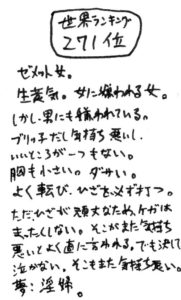 世界ランキング
271位
ゼメット女。
生意気。女に嫌われる女。
しかし男にも嫌われている。
ブリッ子だし気持ち悪いし、
いいところが一つもない。
胸も小さい。ダサい。
よく転び、ひざを必ず打つ。
ただひざが頑丈なため、ケガは
まったくしない。そこがまた気持ち
悪いとよく直に言われる。でも決して
泣かない。そこもまた気持ち悪い。
夢:淫婦。